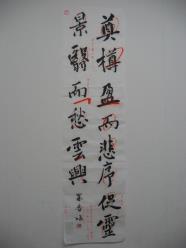 奠樽盈而悲序促靈
景翳而愁雲興